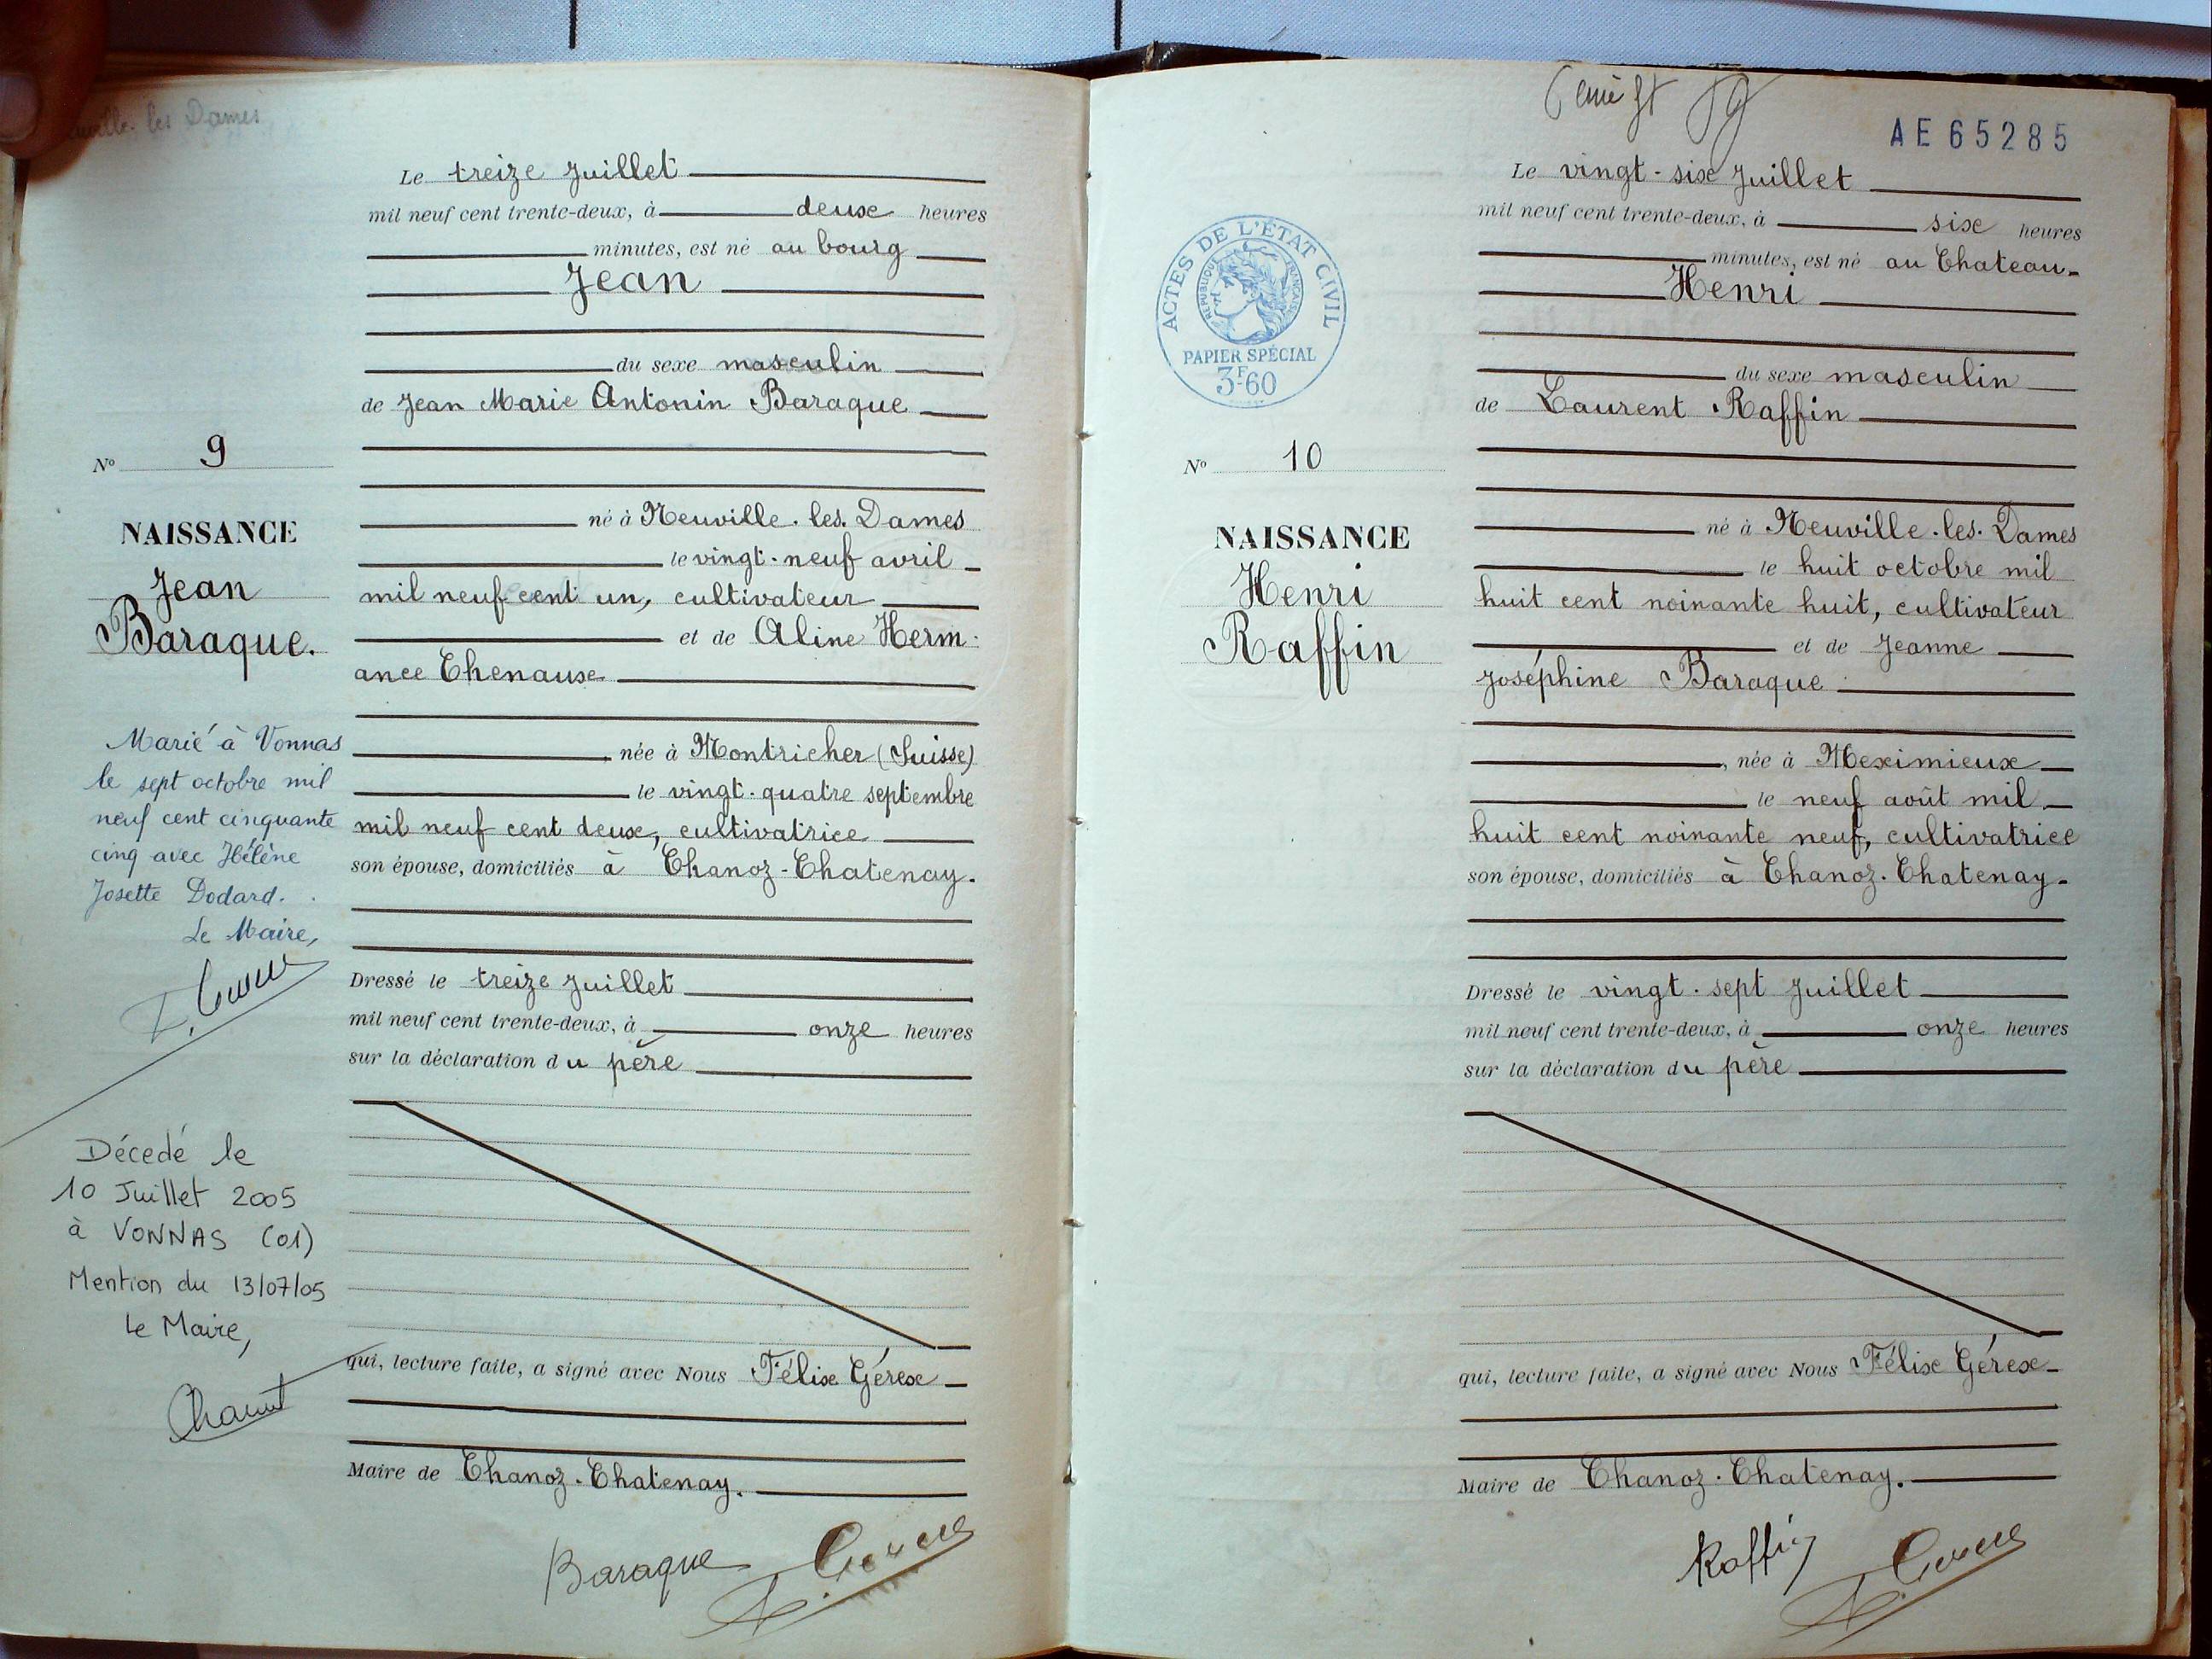 les Dames
Le treize Juillet
mil neuf cent trente-deux, à deux heures
minutes, est né au bourg
Jean
du sexe masculin
de Jean Marie Antonin Baraque
né à Neuville-les-Dames
le vingt-neuf avril
mil neuf cent un, cultivateur
et de Aline Herm-
ance Chenaux
née à Montricher (Suisse)
le vingt-quatre septembre
mil neuf cent deux, cultivatrice
son épouse, domiciliés à Chanoz-Chatenay.
Dressé le treize Juillet
mil neuf cent trente-deux, à onze heures
sur la déclaration du père
qui, lecture faite, a signé avec Nous Félix Gérex
Maire de Chanoz-Chatenay.
Baraque
No 9
NAISSANCE
Jean
Baraque.
Marié à Vonnas
le sept octobre mil
neuf cent cinquante
cinq avec Hélène
Josette Dodard.
Le Maire,
Décedé le
10 Juillet 2005
à VONNAS (01)
Mention du 13/07/05
Le Maire,
AE 65285
ACTES DE L'ÉTAT CIVIL
RÉPUBLIQUE FRANÇAISE
PAPIER SPÉCIAL
3F60
No 10
NAISSANCE
Henri
Raffin
Le vingt-six Juillet
mil neuf cent trente-deux, à six heures
minutes, est né au Chateau
Henri
du sexe masculin
de Laurent Raffin
né à Neuville-les-Dames
le huit octobre mil
huit cent noinante huit, cultivateur
et de Jeanne
Joséphine Baraque
, née à Meximieux
le neuf août mil
huit cent noinante neuf, cultivatrice
son épouse, domiciliés à Chanoz-Chatenay.
Dressé le vingt-sept Juillet
mil neuf cent trente-deux, à onze heures
sur la déclaration du père
qui, lecture faite, a signé avec Nous Félix Gérex
Maire de Chanoz-Chatenay.
Raffin